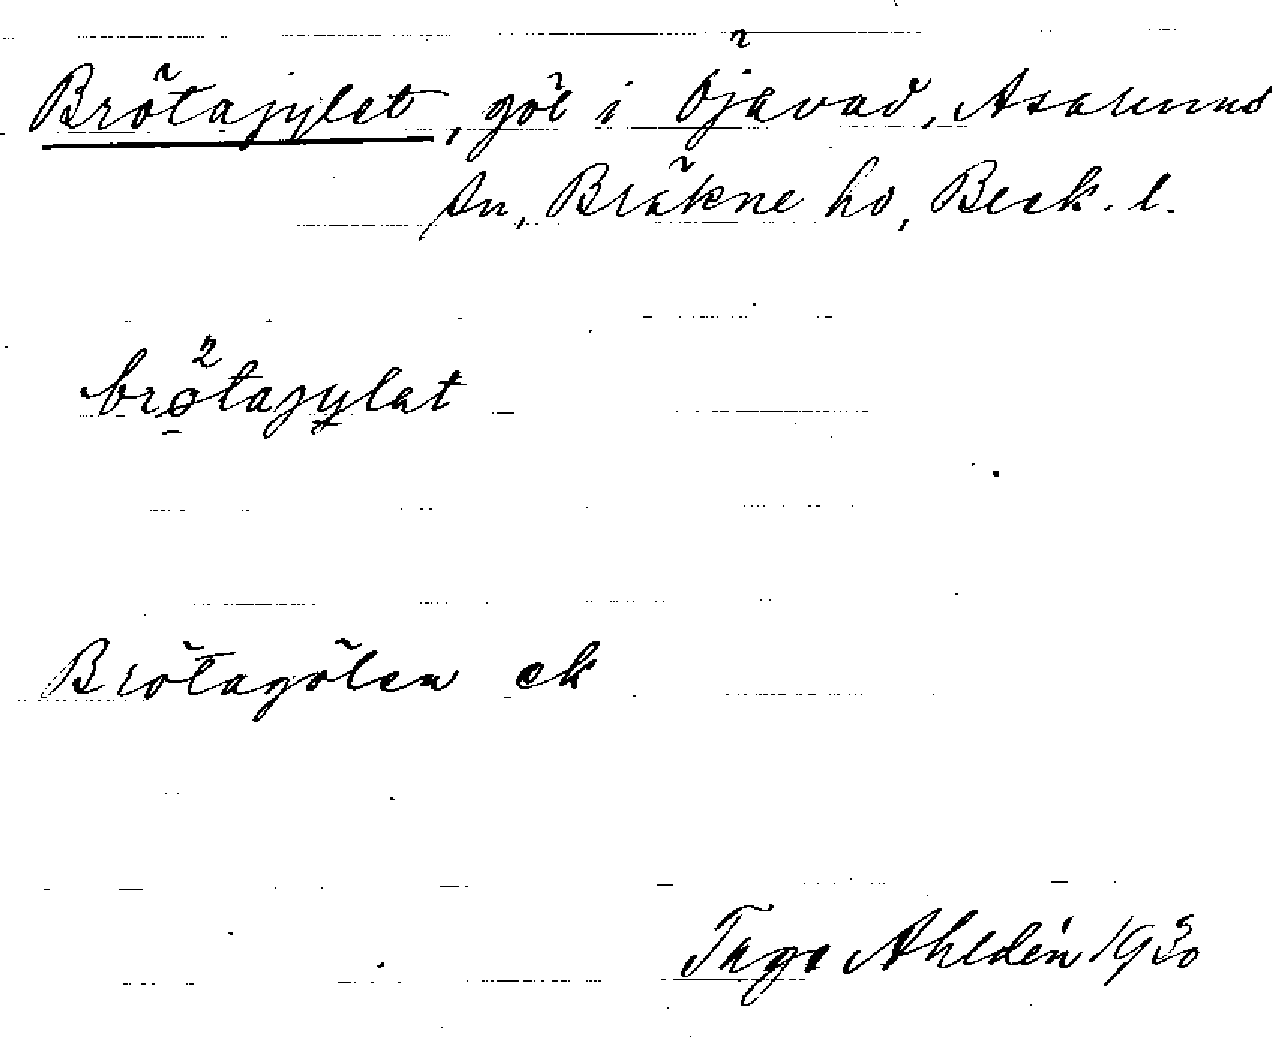 Brötajylet, göl i Öjavad, Asarums
sn, Bräkne hd, Blek. l.
brö²tajylat
Brötagölen ek
Tage Ahldén 1930